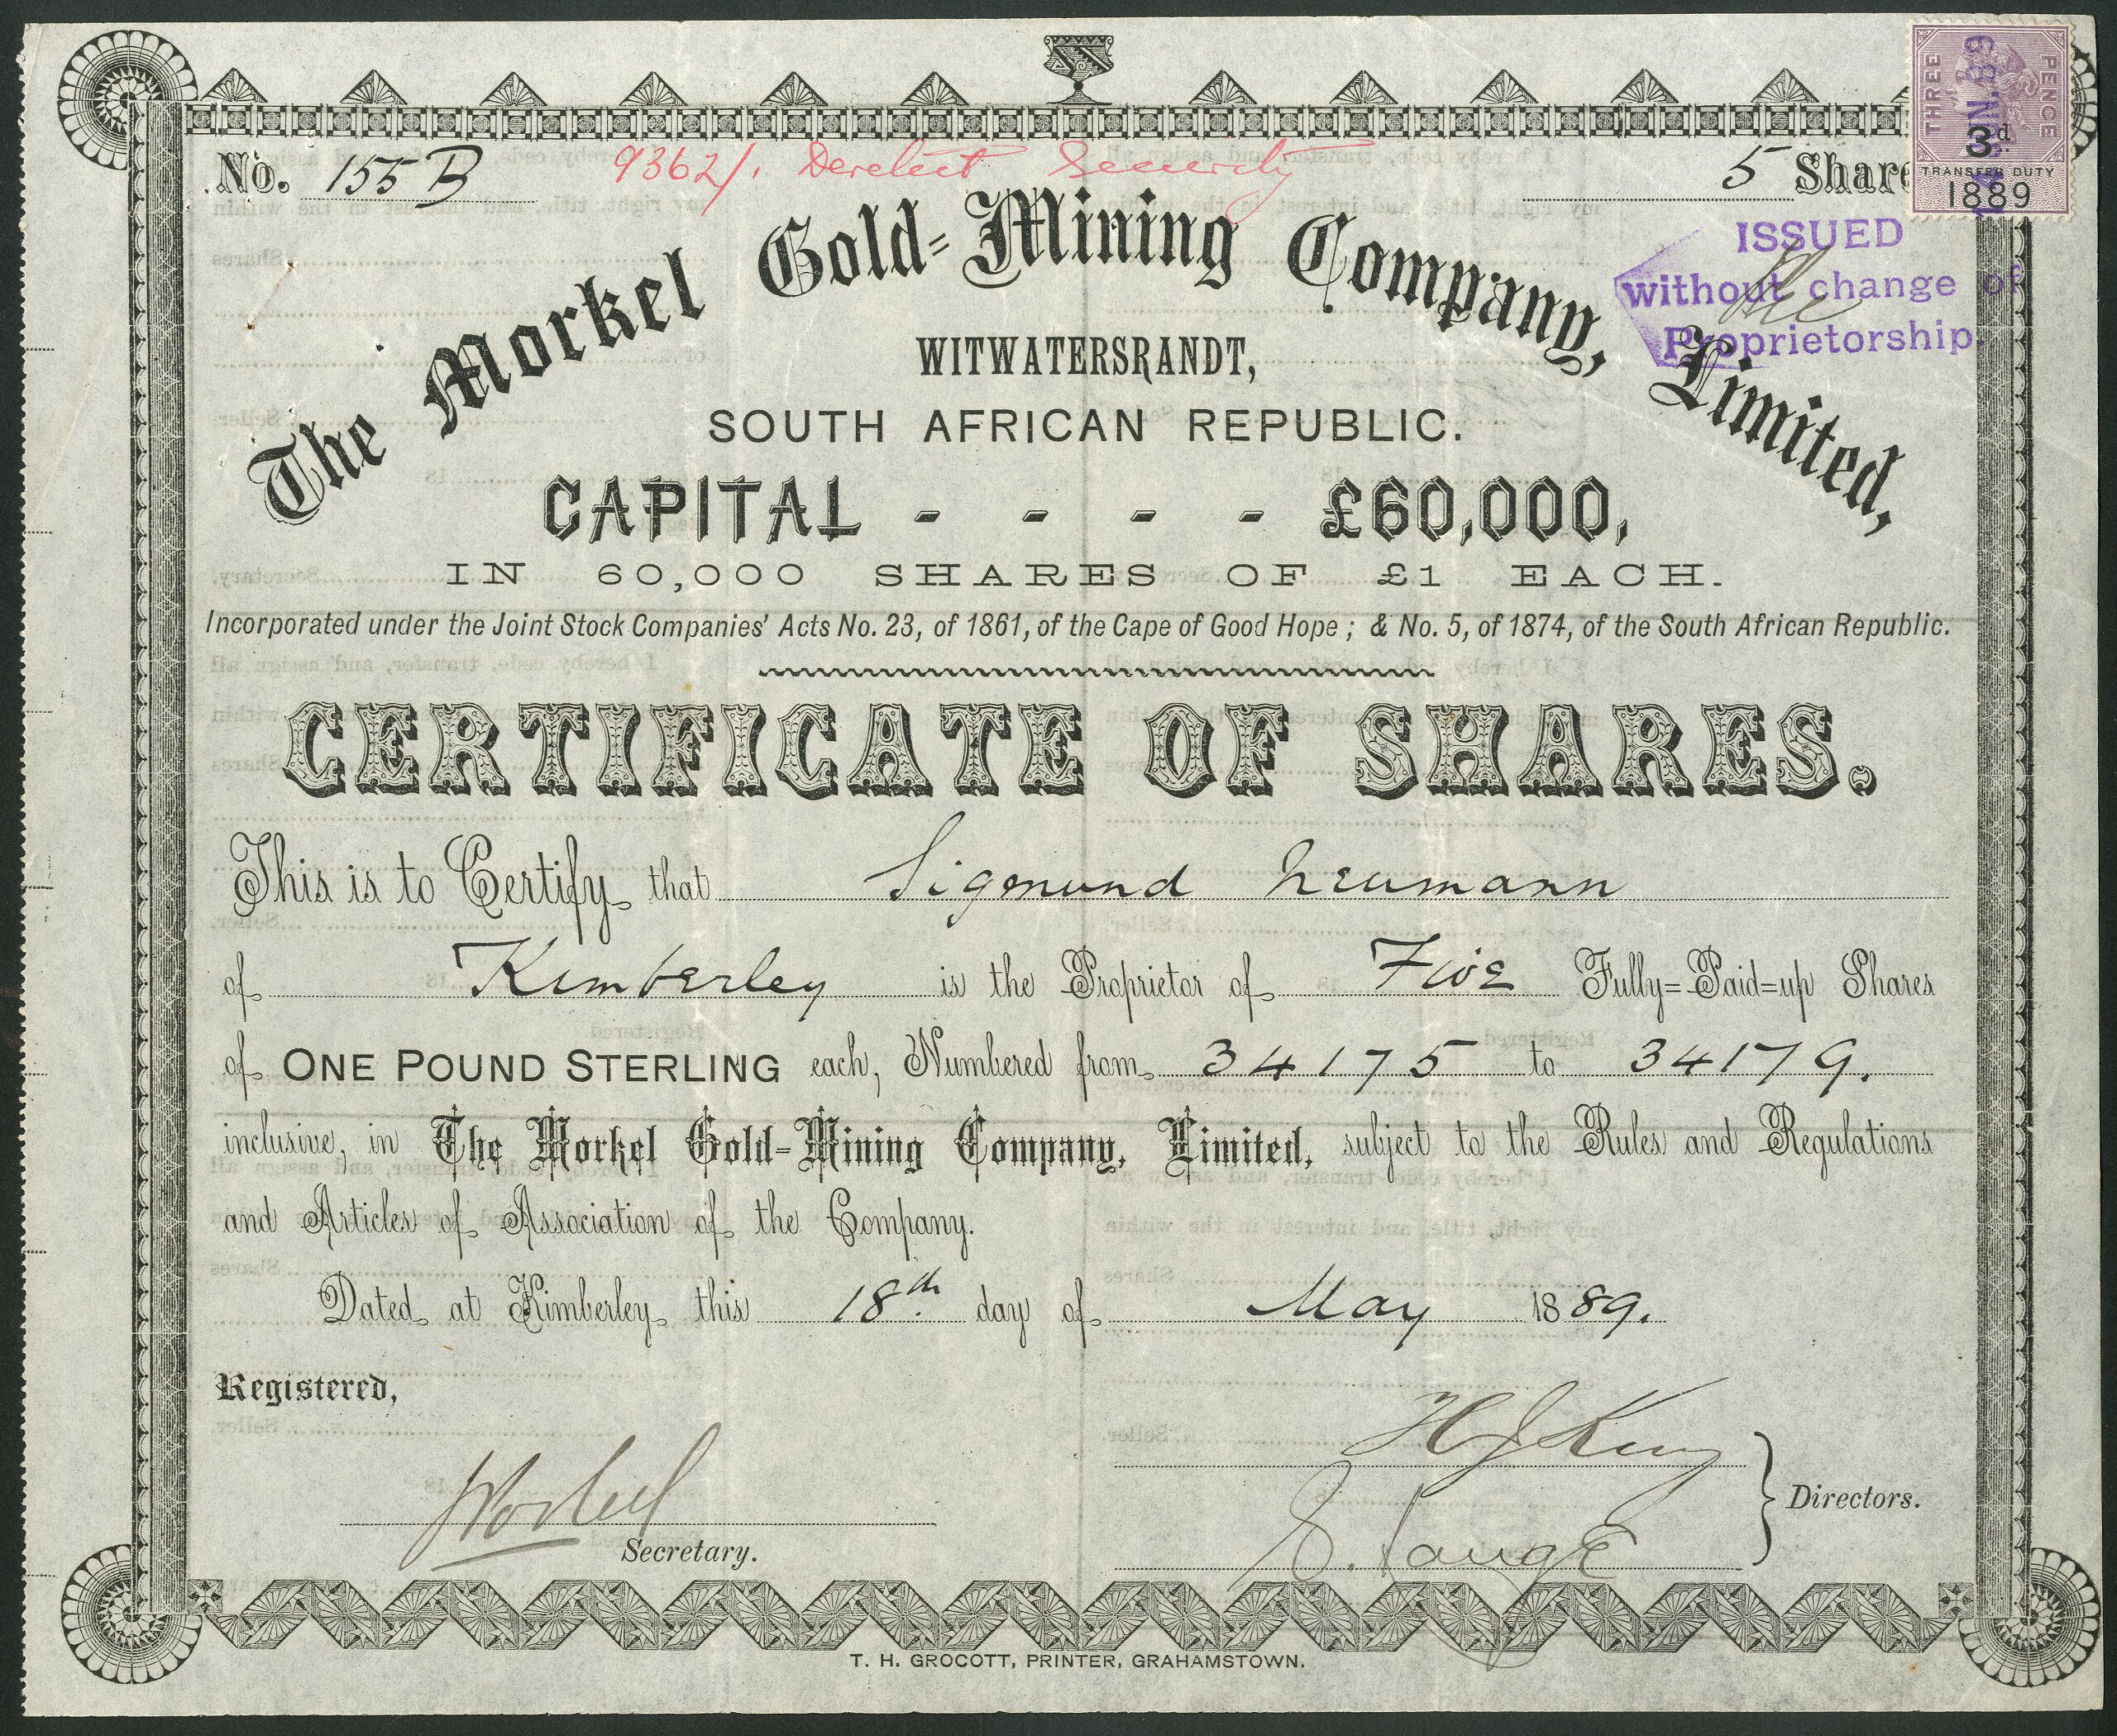 No. 155 B
9362/. Derelect Security
5 Share
THREE PENCE
3d
TRANSFER DUTY
1889
ISSUED
without change of
Proprietorship.
The Morkel Gold-Mining Company, Limited,
WITWATERSRANDT,
SOUTH AFRICAN REPUBLIC.
CAPITAL - - - - £60,000,
IN 60,000 SHARES OF £1 EACH.
Incorporated under the Joint Stock Companies' Acts No. 23, of 1861, of the Cape of Good Hope ; & No. 5, of 1874, of the South African Republic.
CERTIFICATE OF SHARES.
This is to Certify that Sigmund Neumann
of Kimberley is the Proprietor of Five Fully=Paid=up Shares
of ONE POUND STERLING each, Numbered from 34175 to 34179.
inclusive, in The Morkel Gold-Mining Company, Limited, subject to the Rules and Regulations
and Articles of Association of the Company.
Dated at Kimberley this 18th day of May 1889.
Registered,
H J King
Directors.
Secretary.
T. H. GROCOTT, PRINTER, GRAHAMSTOWN.